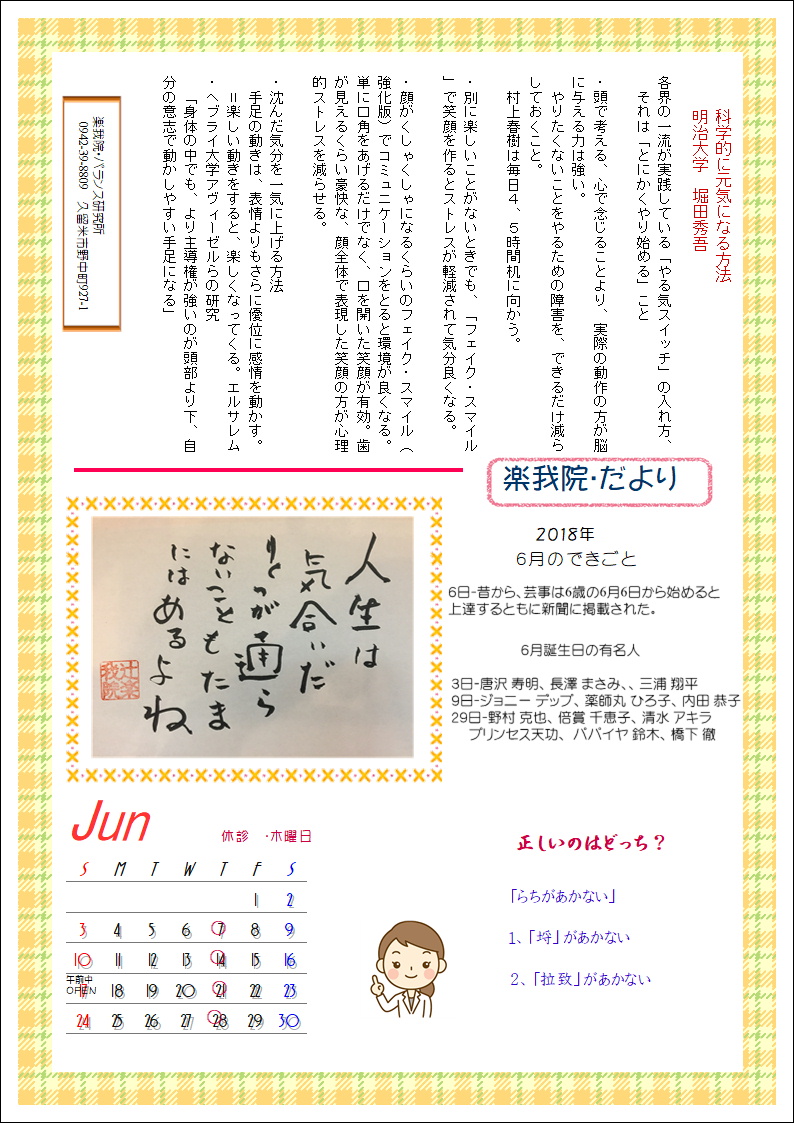 科学的に元気になる方法
明治大学　堀田秀吾
各界の一流が実践している「やる気スイッチ」の入れ方、
それは「とにかくやり始める」こと
・頭で考える、心で念じることより、実際の動作の方が脳
に与える力は強い。
やりたくないことをやるための障害を、できるだけ減ら
しておくこと。
村上春樹は毎日４、５時間机に向かう。
・別に楽しいことがないときでも、「フェイク・スマイル
」で笑顔を作るとストレスが軽減されて気分良くなる。
・顔がくしゃくしゃになるくらいのフェイク・スマイル（
強化版）でコミュニケーションをとると環境が良くなる。
単に口角をあげるだけでなく、口を開いた笑顔が有効。歯
が見えるくらい豪快な、顔全体で表現した笑顔の方が心理
的ストレスを減らせる。
・沈んだ気分を一気に上げる方法
手足の動きは、表情よりもさらに優位に感情を動かす。
＝楽しい動きをすると、楽しくなってくる。エルサレム
・ヘブライ大学アヴィーゼルらの研究
「身体の中でも、より主導権が強いのが頭部より下、自
分の意志で動かしやすい手足になる」
楽我院・バランス研究所
0942-39-8809　久留米市野中町927-1
楽我院・だより
2018年
6月のできごと
6日-昔から、芸事は6歳の6月6日から始めると
上達するともに新聞に掲載された。
6月誕生日の有名人
3日-唐沢 寿明、長澤 まさみ、、三浦 翔平
9日-ジョニー デップ、薬師丸 ひろ子、内田 恭子
29日-野村 克也、倍賞 千恵子、清水 アキラ
プリンセス天功、パパイヤ 鈴木、橋下 徹
人生は
気合いだ
りくつが通ら
ないこともたま
にはあるよね
辻楽
我院
Jun
休診　・木曜日
S M T W T F S
1 2
3 4 5 6 7 8 9
10 11 12 13 14 15 16
午前中
OPEN
17 18 19 20 21 22 23
24 25 26 27 28 29 30
正しいのはどっち？
「らちがあかない」
1、「埒」があかない
2、「拉致」があかない